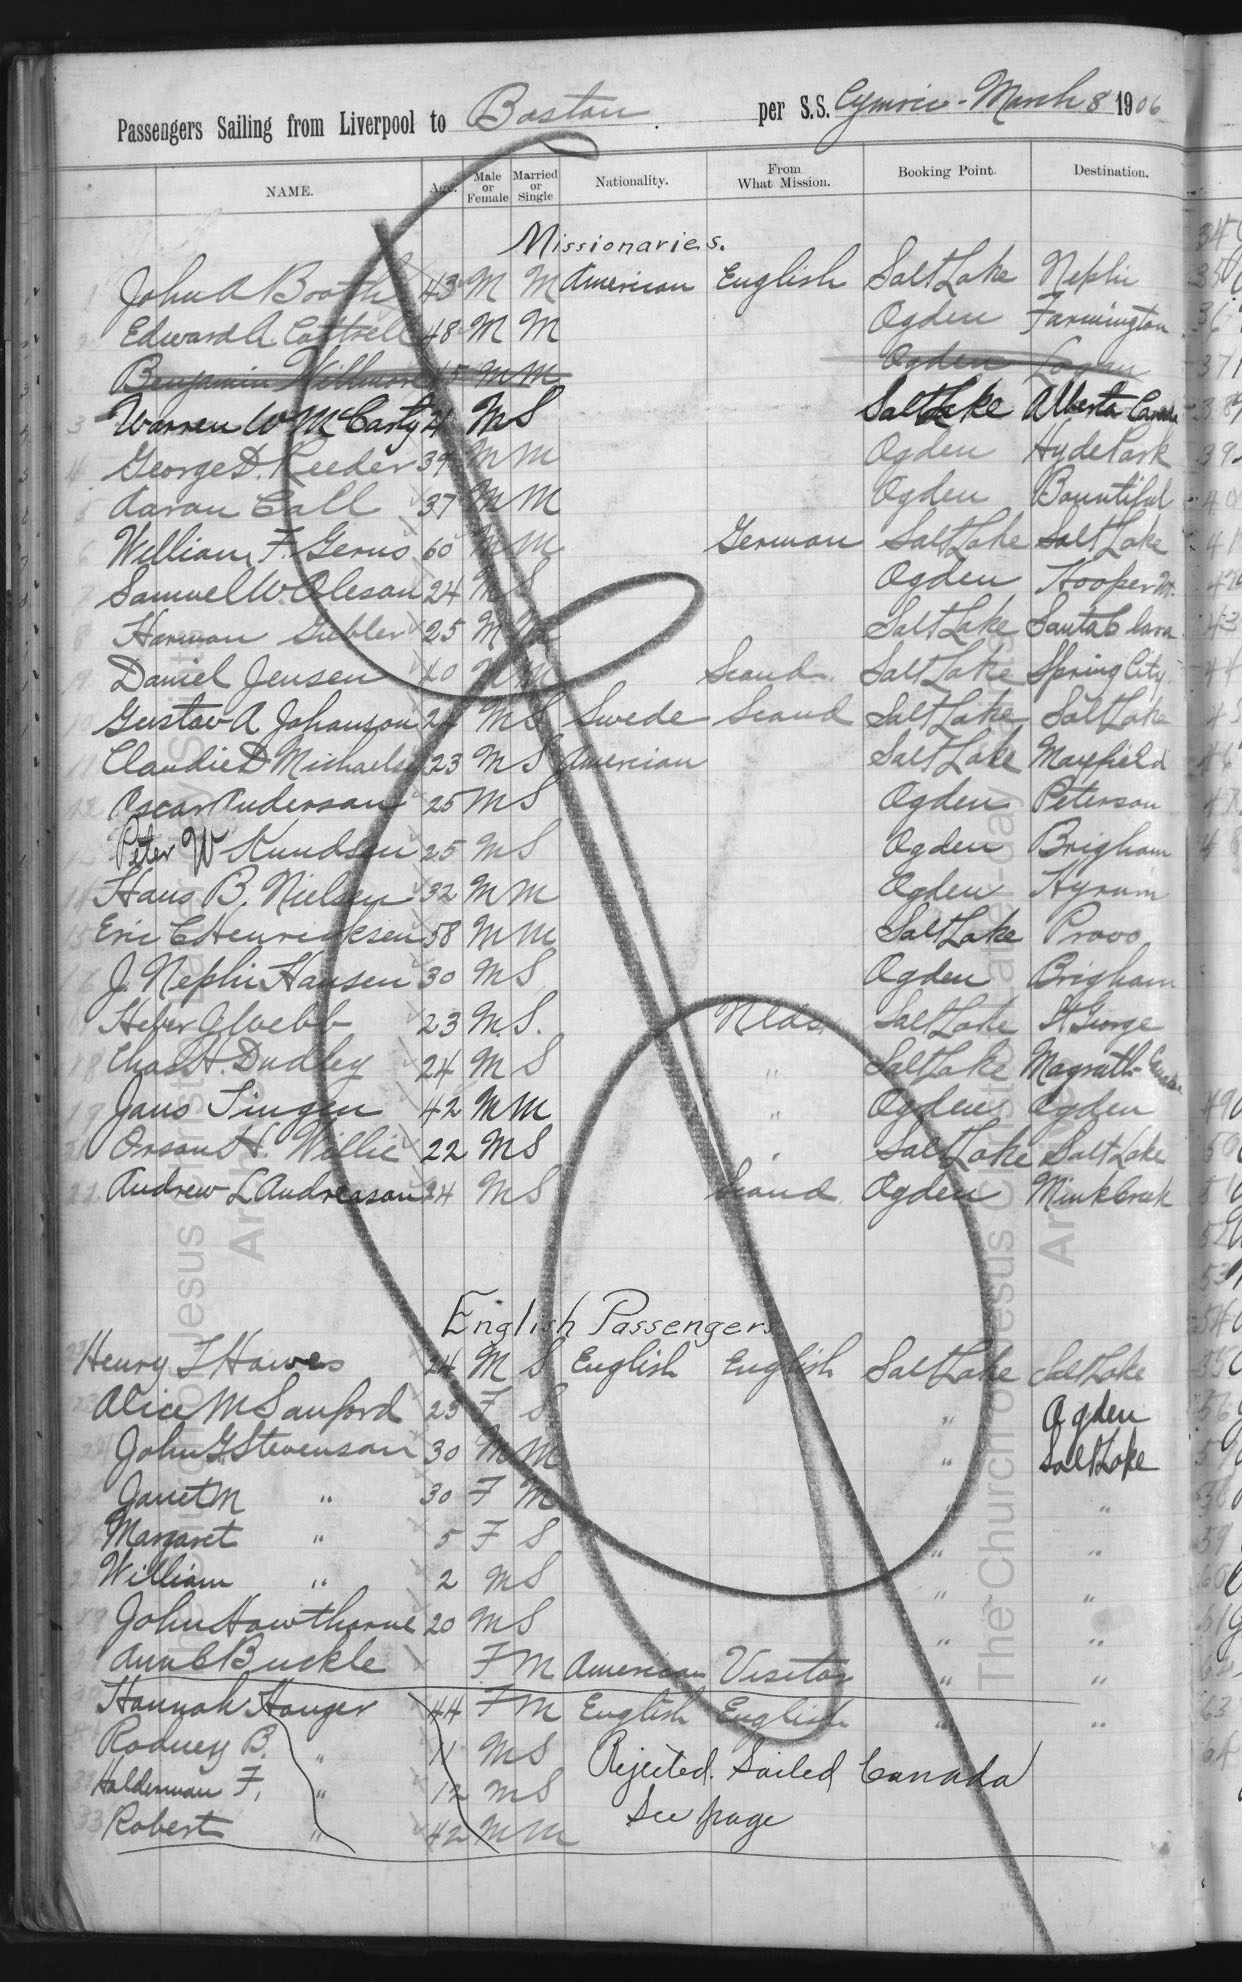 Passengers Sailing from Liverpool to Boston per S.S. Cymric - March 8 1906
NAME. Age. Male or Female Married or Single Nationality. From What Mission. Booking Point. Destination.
Missionaries.
1 John A Booth 43 M M American English Salt Lake Nephi
2 Edward A Cottrell 48 M M Ogden Farmington
Benjamin Willmore 45 M M Ogden Logan
3 Warren W McCarty 21 M S Salt Lake Alberta Canada
4 George D. Reeder 39 M M Ogden Hyde Park
5 Aaron Call 37 M M Ogden Bountiful
6 William F. Gerns 60 M M German Salt Lake Salt Lake
7 Samuel W. Oleson 24 M S Ogden Hooper
8 Harman Gubler 25 M M Salt Lake Santa Clara
9 Daniel Jensen 40 M M Scand. Salt Lake Spring City
10 Gustav A Johanson 24 M S Swede Scand Salt Lake Salt Lake
11 Claudie D Michaelsen 23 M S American Salt Lake Mayfield
12 Oscar Anderson 25 M S Ogden Peterson
13 Peter W Knudsen 25 M S Ogden Brigham
14 Hans B. Nielsen 32 M M Ogden Hyrum
15 Eric C Henricksen 58 M M Salt Lake Provo
16 J. Nephi Hansen 30 M S Ogden Brigham
17 Heber G Webb 23 M S. Nlds. Salt Lake St George
18 Chas H. Dudley 24 M S " Salt Lake Magrath Canada
19 Jans Tingen 42 M M " Ogden Ogden
20 Orson H. Willie 22 M S " Salt Lake Salt Lake
21 Andrew L Andreason 24 M S Scand. Ogden Mink Creek
English Passengers
22 Henry T Hawes 24 M S English English Salt Lake Salt Lake
23 Alice M Sanford 23 F S " Ogden
24 John G Stevenson 30 M M " Salt Lake
25 Janet M " 30 F M " "
26 Margaret " 5 F S " "
27 William " 2 M S " "
28 John Hawthorne 20 M S " "
29 Ann C Buckle F M American Visitor " "
30 Hannah Hanger 44 F M English English " "
31 Rodney B. " 11 M S Rejected. Sailed Canada
32 Halderman F. " 12 M S See page
33 Robert " 42 M M